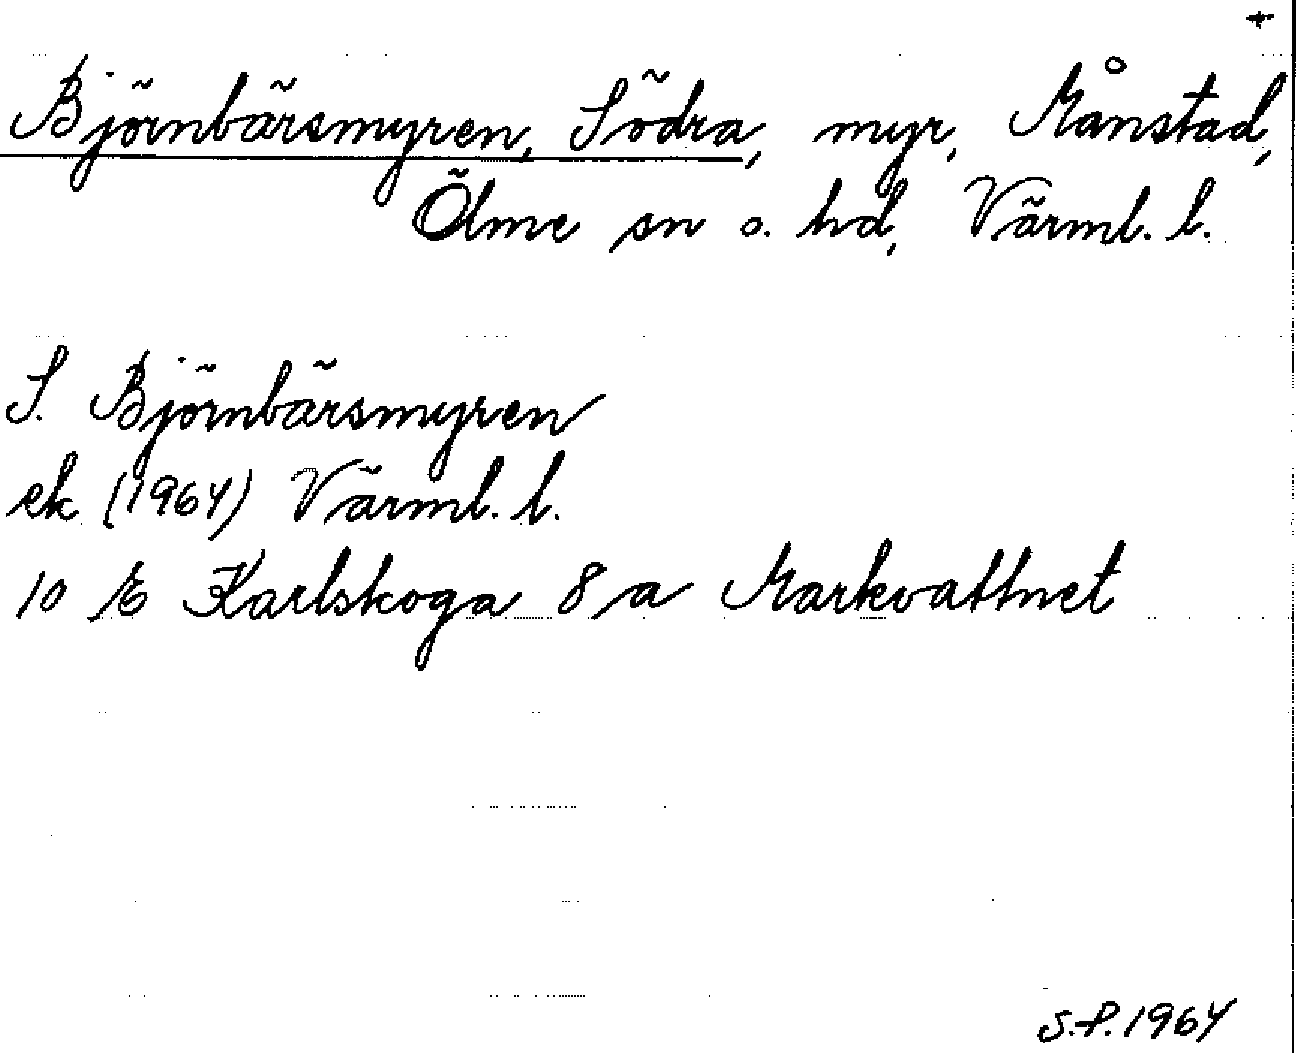 +
Björnbärsmyren, Södra, myr, Månstad,
Ölme sn o. hd, Värml. l.
S. Björnbärsmyren
ek (1964) Värml. l.
10 E Karlskoga 8 a Markvattnet
S.P. 1964